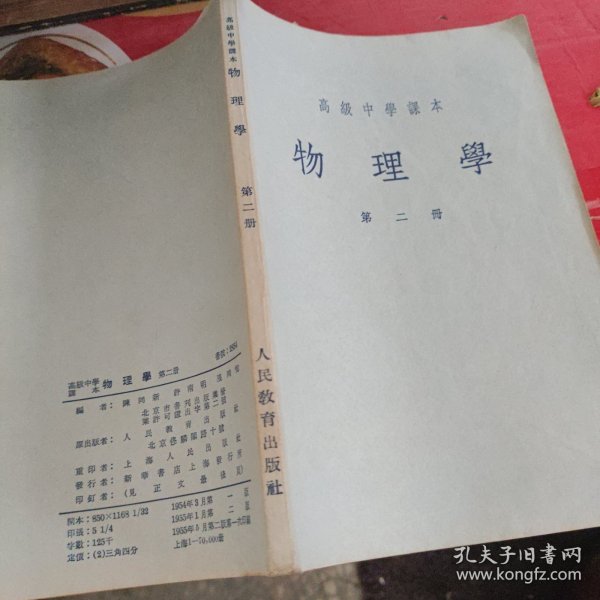 高級中學課本
物理學
第二冊
高級中學課本 物理學 第二册
人民敎育出版社
高級中學課本 物理學 第二册
書號:
編者:陳同新 許南明
北京市書刊出版業營業許可證出字第二號
原出版者:人民敎育出版社
北京
重印者:上海人民出版社
發行者:新華書店上海發行所
印釘者:(見正文最後頁)
開本:850×1168 1/32
印張:5 1/4
字數:125千
定價:(2)三角四分
1954年3月第一版
1955年1月第二版
1955年5月第二版第一次印刷
上海1—70,000册
孔夫子旧书网
www.kongfz.com